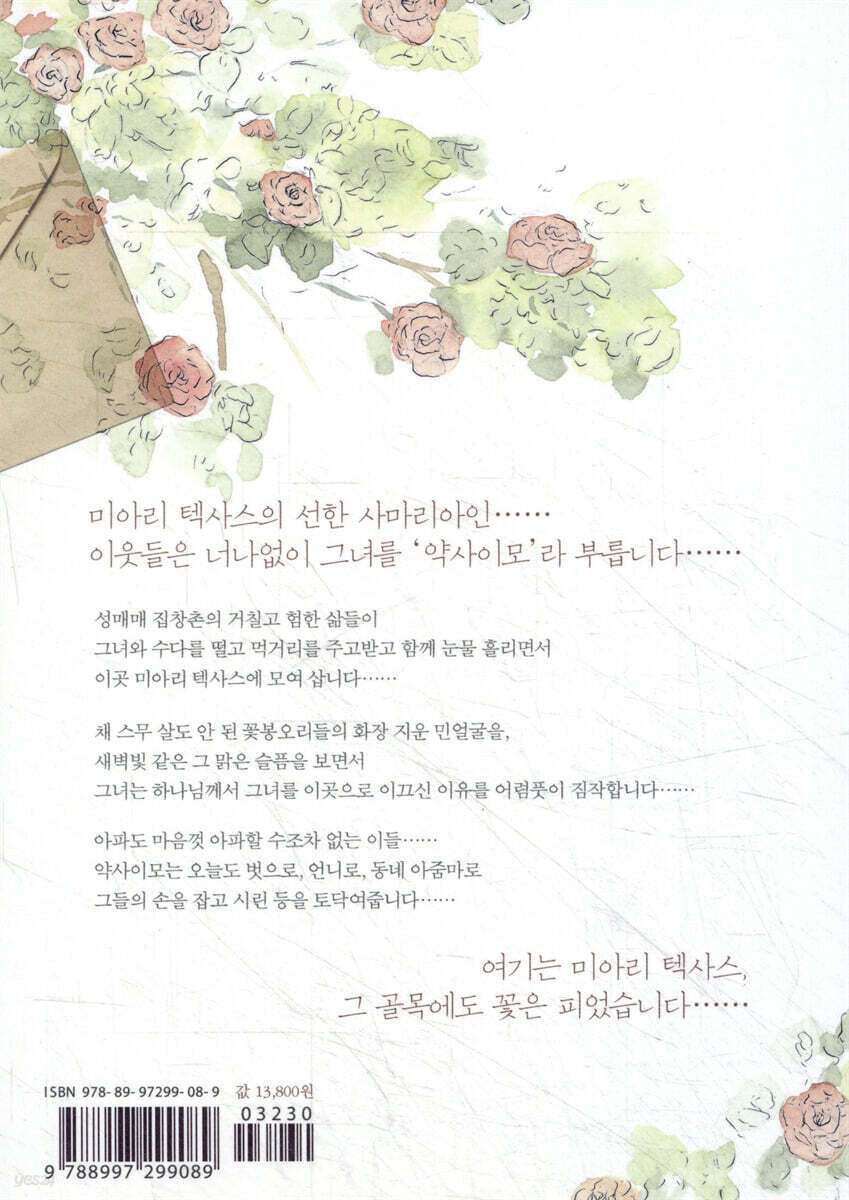 미아리 텍사스의 선한 사마리아인……
이웃들은 너나없이 그녀를 ‘약사이모’라 부릅니다……
성매매 집창촌의 거칠고 험한 삶들이
그녀와 수다를 떨고 먹거리를 주고받고 함께 눈물 흘리면서
이곳 미아리 텍사스에 모여 삽니다……
채 스무 살도 안 된 꽃봉오리들의 화장 지운 민얼굴을,
새벽빛 같은 그 맑은 슬픔을 보면서
그녀는 하나님께서 그녀를 이곳으로 이끄신 이유를 어렴풋이 짐작합니다……
아파도 마음껏 아파할 수조차 없는 이들……
약사이모는 오늘도 벗으로, 언니로, 동네 아줌마로
그들의 손을 잡고 시린 등을 토닥여줍니다……
여기는 미아리 텍사스,
그 골목에도 꽃은 피었습니다……
ISBN 978-89-97299-08-9 값 13,800원
03230
9 788997 299089
yes24